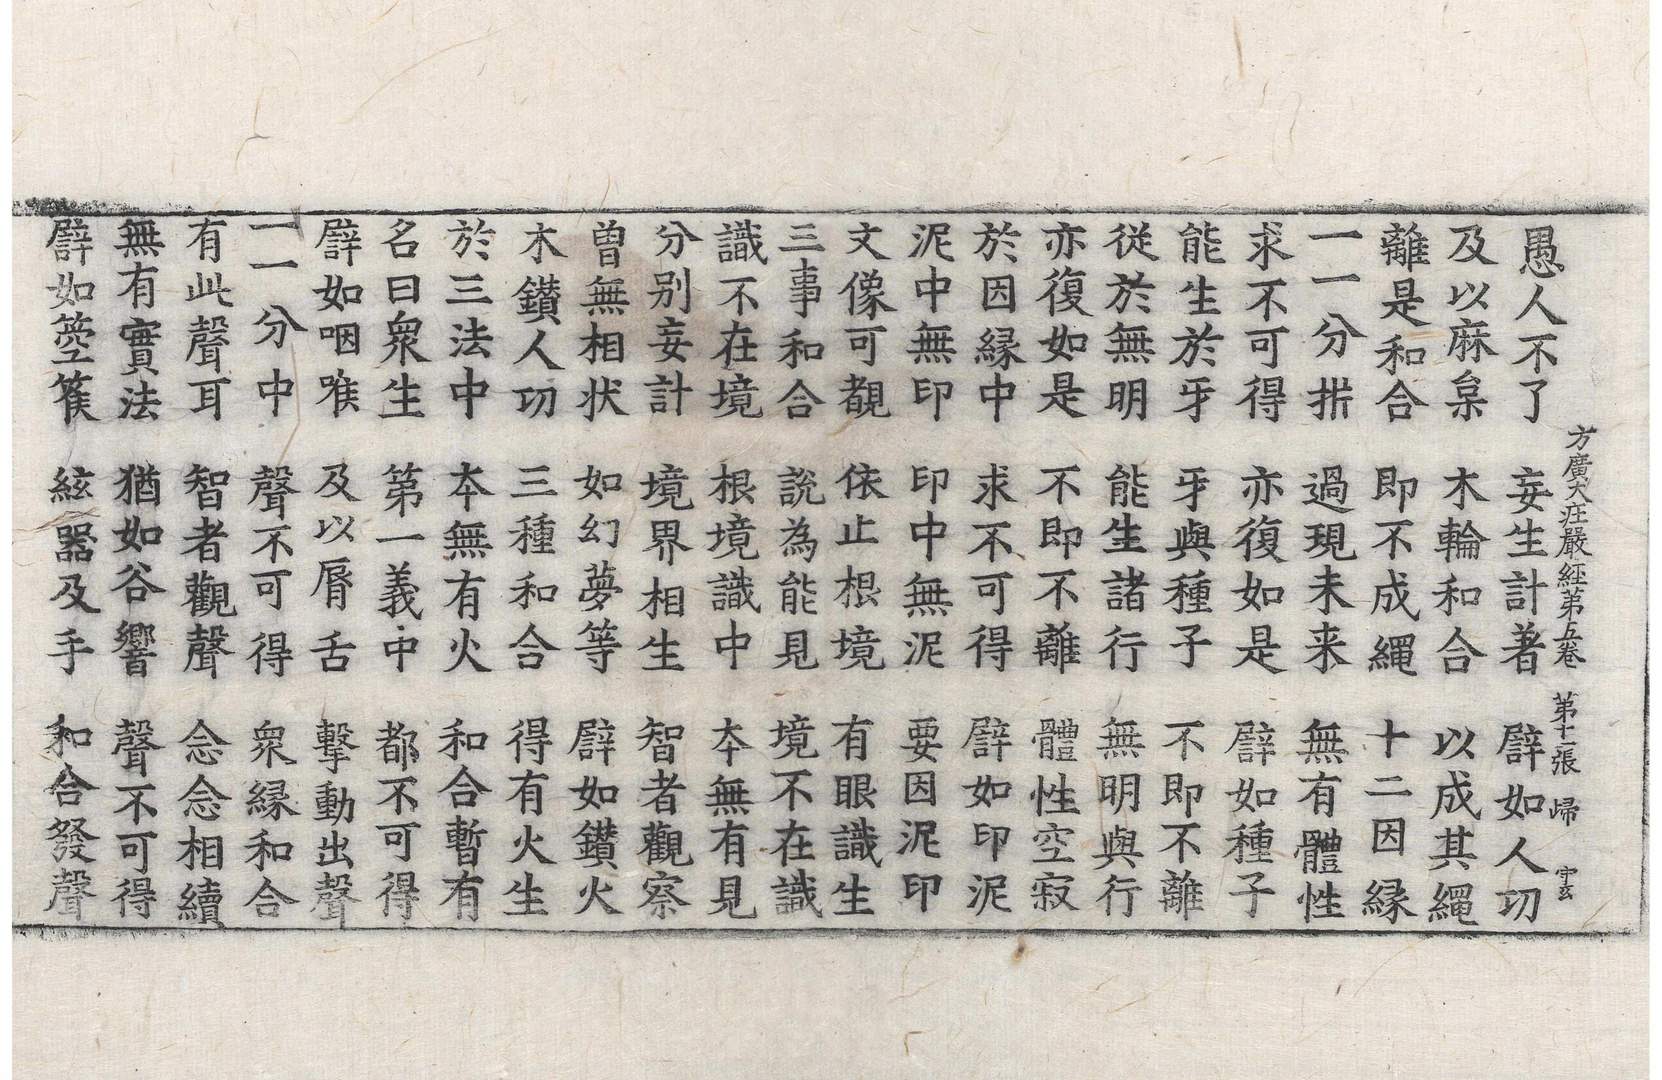 愚人不了 妄生計著 譬如人功
方廣大庄嚴経苐五卷 第十二張 歸 守玄
及以麻枲 木輪和合 以成其繩
離是和合 即不成繩 十二因縁
一一分㭊 過現未来 無有體性
求不可得 亦復如是 譬如種子
能生於牙 牙與種子 不即不離
從於無明 能生諸行 無明與行
亦復如是 不即不離 體性空寂
於因縁中 求不可得 譬如印泥
泥中無印 印中無泥 要因泥印
文像可覩 依止根境 有眼識生
三事和合 說為能見 境不在識
識不在境 根境識中 夲無有見
分别妄計 境界相生 智者觀察
曽無相状 如幻夢等 譬如鑚火
木鑚人功 三種和合 得有火生
於三法中 夲無有火 和合暫有
名曰衆生 苐一義中 都不可得
譬如咽喉 及以脣舌 擊動出聲
一一分中 聲不可得 衆縁和合
有此聲耳 智者觀聲 念念相續
無有實法 猶如谷響 聲不可得
譬如箜篌 絃器及手 和合發聲